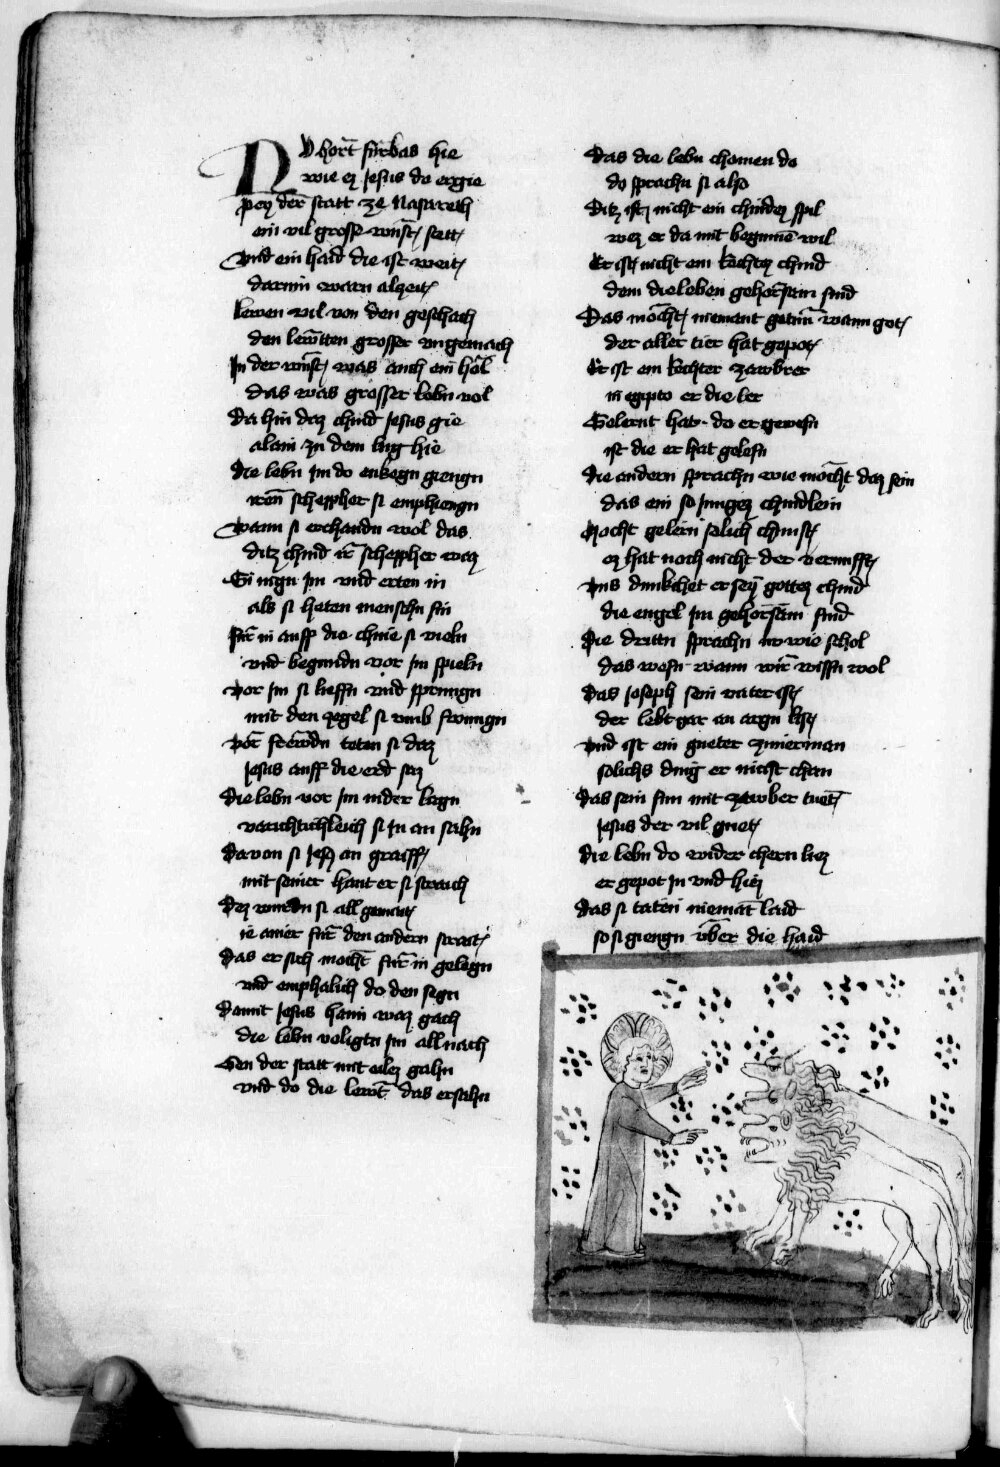 NV hort fürbas hie
wie eʒ Jesus do ergie
peÿ der statt ze Nasareth
ein vil grosse wüst stett
Vnd ein haid die ist weit
darinn warn alczeit
lewen vil von den geschach
den lewtten grosser vngemach
In der wüst was auch ein hol
das was grosser lebn vol
Da hin daʒ chind Jesus gie
alain zu dem lug hie
die lebn Im do enkegn giengn
iren scheppher si emphiengn
Wann si erchandn wol das
ditz chind ir scheppher waʒ
Si nign Im vnd erten in
als si heten menschn sin
für in auff die chnie si vieln
vnd begundn vor Im spieln
vor Im si lieffn vnd sprungn
mit den zegel si vmb swungn
vor frewdn teten si daʒ
Jesus auff die erd saʒ
die lebn vor Im nider lagn
vorichtichleich si In an sahn
davon si Jesus an graiff
mit seiner hant er si straich
Deʒ wurdn si all gemait
ie ainer für den andern strait
das er sich mocht für in gelegn
vnd emphalich do den segn
Damit Jesus haim waʒ gach
die lebn voligtn Im all nach
Gen der statt mit eileʒ gahn
vnd do die lewt das ersahn
das die lebn chomen do
do sprachn si also
Ditz ist nicht ein chindeʒ spil
weʒ er da mit beginnē wil
Er ist nicht ein Rechtʒ chind
dem die leben gehorsam sind
Das mocht niemant getun wann got
der aller tier hat gepot
Er ist ein Rechter zawbrer
in egipto er die ler
Gelernt hat do er gewesn
ist die er hat gelesn
die andern sprachn wie mocht daʒ sein
das ein so Jungeʒ chindlein
Mocht gelern solich chunst
eʒ hat noch nicht der vernufft
Vns dunkchet er seÿ gotteʒ chind
die engel Im gehorsam sind
Die drittn sprachn nv wie schol
das wesn wann wir wissn wol
das Joseph sein vater ist
der lebt gar an argn list
vnd ist ein gueter zimerman
solichs ding er nicht chan
das sein sun mit zawber tuet
Jesus der vil guet
die lebn do wider chern lieʒ
er gepot In vnd hieʒ
das si taten niemāt laid
so si giengn über die haid